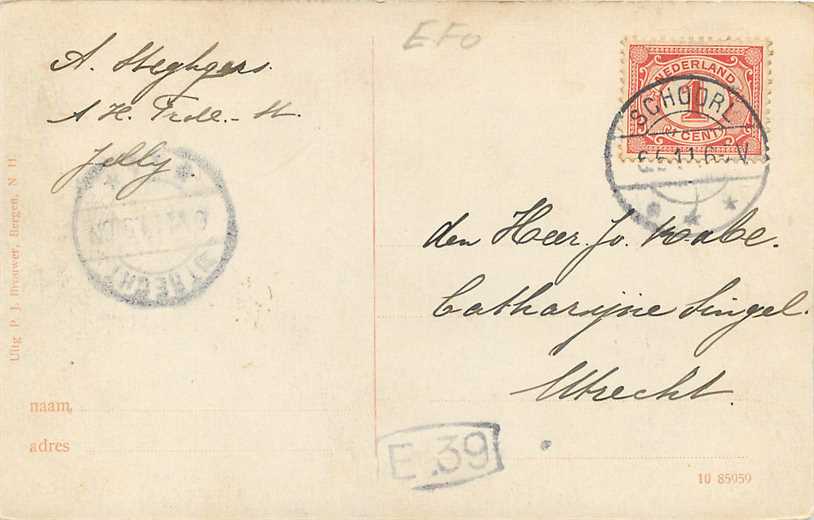 A. Steghgers.
A H. Trdl.-st.
Jelly.
EFO
NEDERLAND
1
CENT
SCHOORL
den Heer. Jo. Kabe.
Catharijne Singel.
Utrecht.
UTRECHT
Uitg P. J. Brouwer, Bergen, N H.
naam
adres
E.39
10 85959